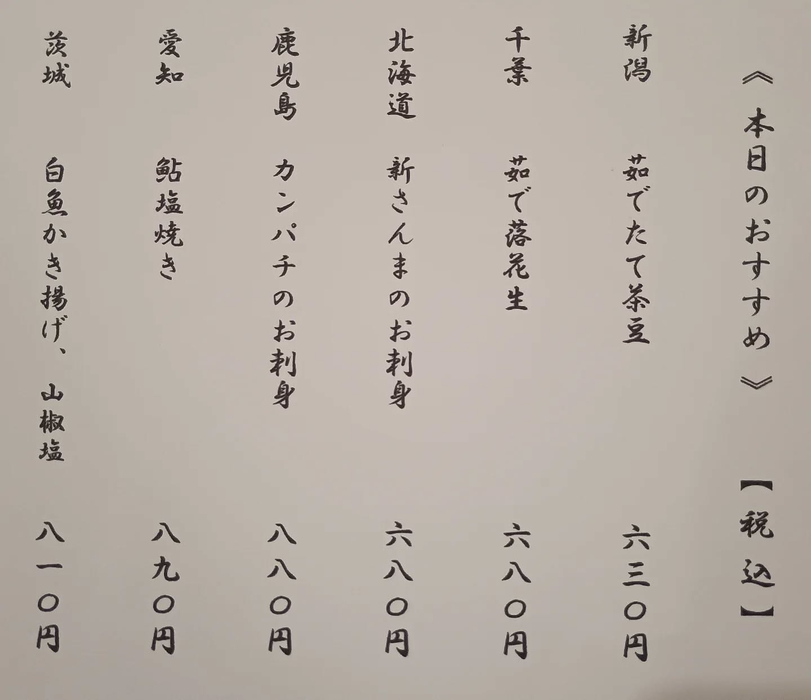 《本日のおすすめ》【税込】
新潟 茹でたて茶豆 六三〇円
千葉 茹で落花生 六八〇円
北海道 新さんまのお刺身 六八〇円
鹿児島 カンパチのお刺身 八八〇円
愛知 鮎塩焼き 八九〇円
茨城 白魚かき揚げ、山椒塩 八一〇円